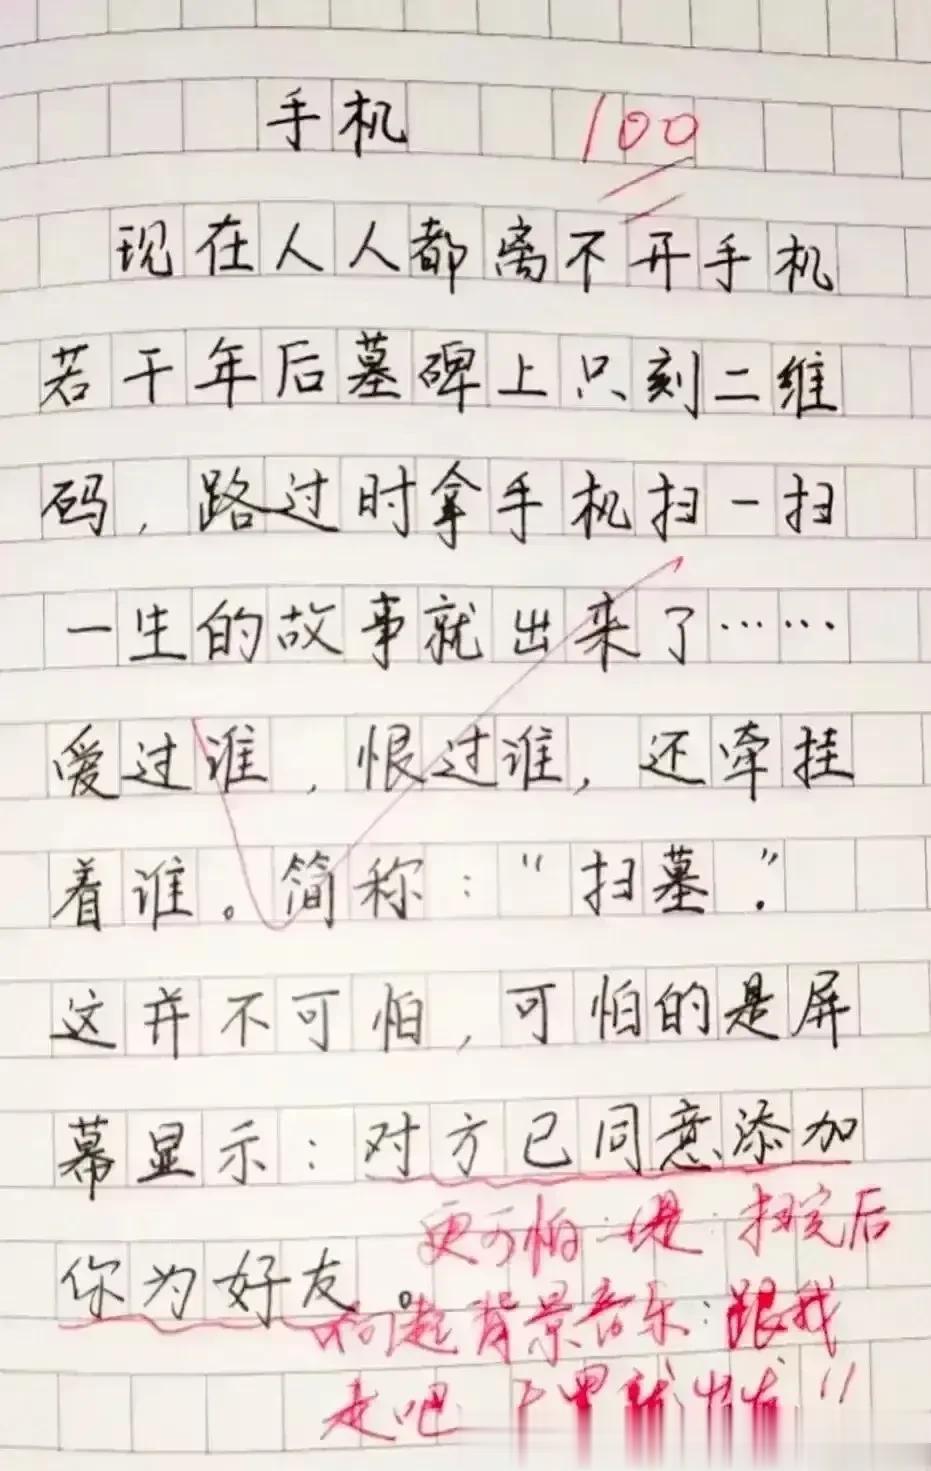 手机
100
现在人人都离不开手机
若干年后墓碑上只刻二维
码，路过时拿手机扫一扫
一生的故事就出来了……
爱过谁，恨过谁，还牵挂
着谁。简称："扫墓".
这并不可怕，可怕的是屏
幕显示：对方已同意添加
你为好友。
更可怕：是：扫完后
响起背景音乐：跟我
走吧 !!